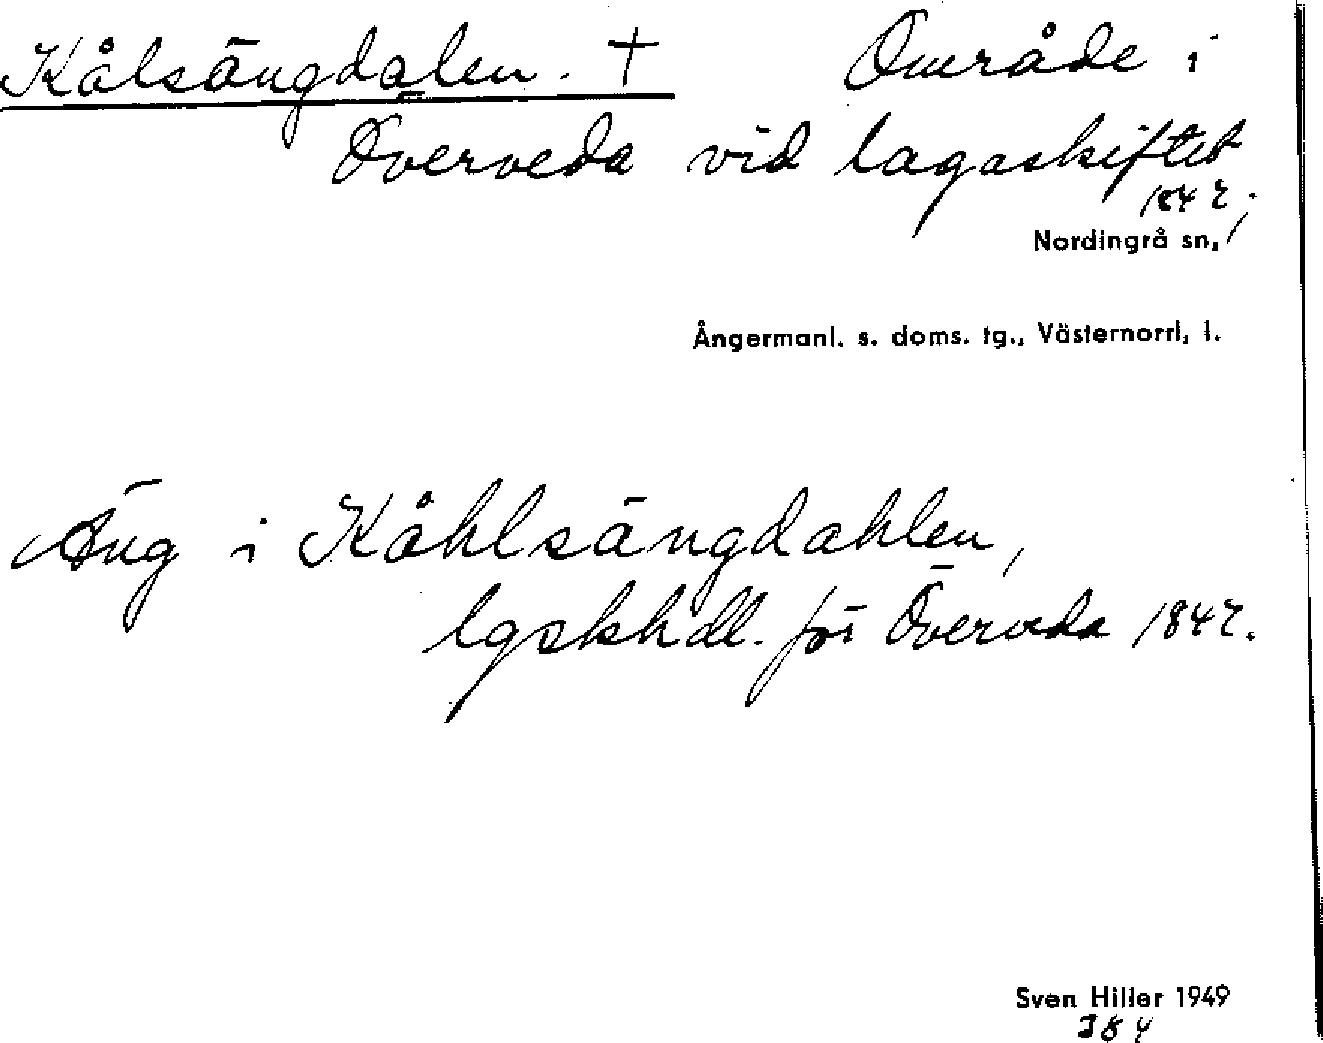 Kålsängdalen. † Område i
Överveda vid lagaskiftet
1842,
Nordingrå sn,
Ångermanl. s. doms. tg., Västernorrl, l.
Äng i Kåhlsängdahlen,
lgskhdl. för Överveda 1842.
Sven Hiller 1949
384